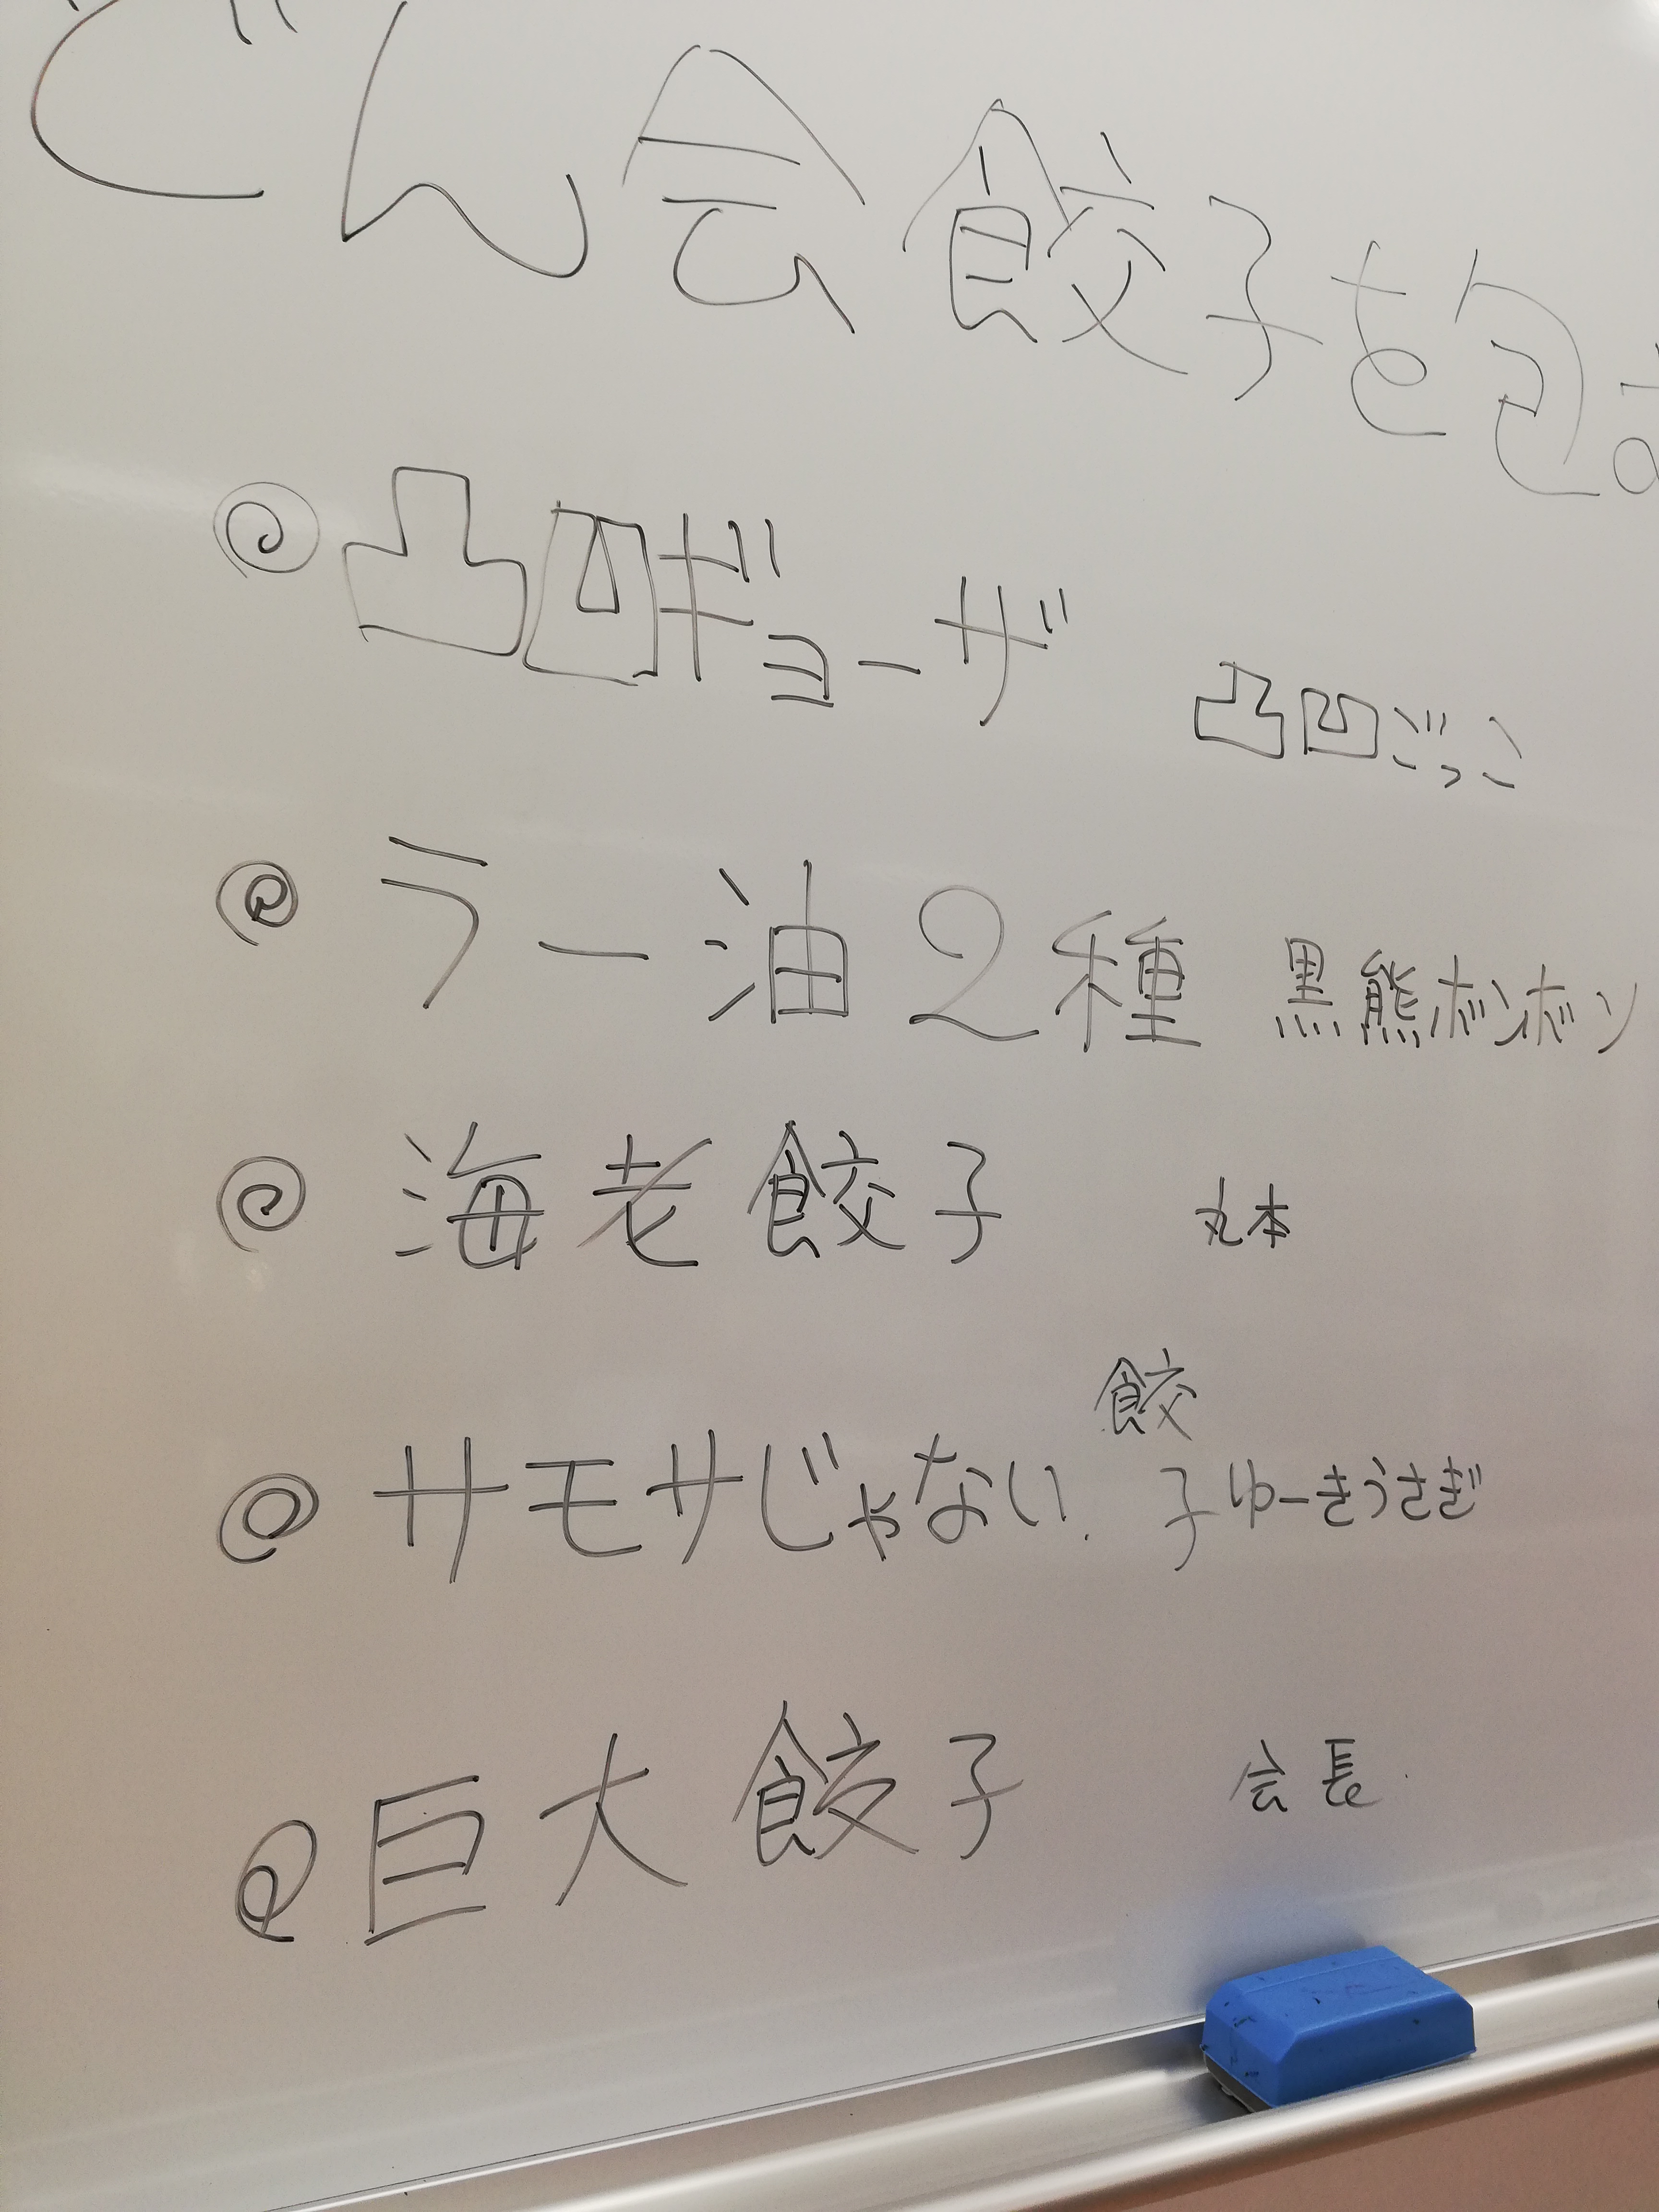 どん会餃子を包
凸凹ギョーザ 凸凹ごっこ
ラー油2種 黒熊ボンボン
海老餃子 丸本
サモサじゃない餃子 ゆーきうさぎ
巨大餃子 会長